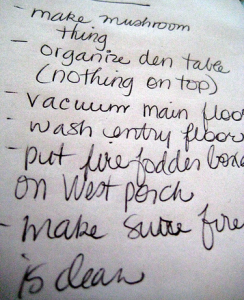 - make mushroom
thing
- organize den table
(nothing on top)
- vacuum main floo
- wash entry floor
- put fire fodder boxe
on West porch
- make sure fire
is clean